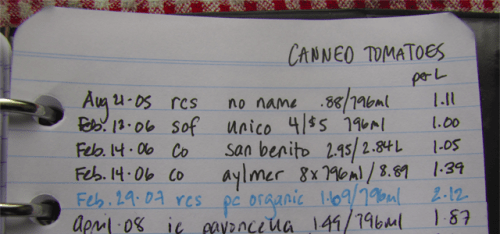 CANNED TOMATOES
per L
Aug 21.05 rcs no name .88/796ml 1.11
Feb. 13.06 sof unico 4/$5 796ml 1.00
Feb. 14.06 co san benito 2.95/2.84L 1.05
Feb. 14.06 co aylmer 8x796ml/8.89 1.39
Feb. 29.07 rcs pc organic 1.69/796ml 2.12
April.08 ic pavoncella 1.49/796ml 1.87